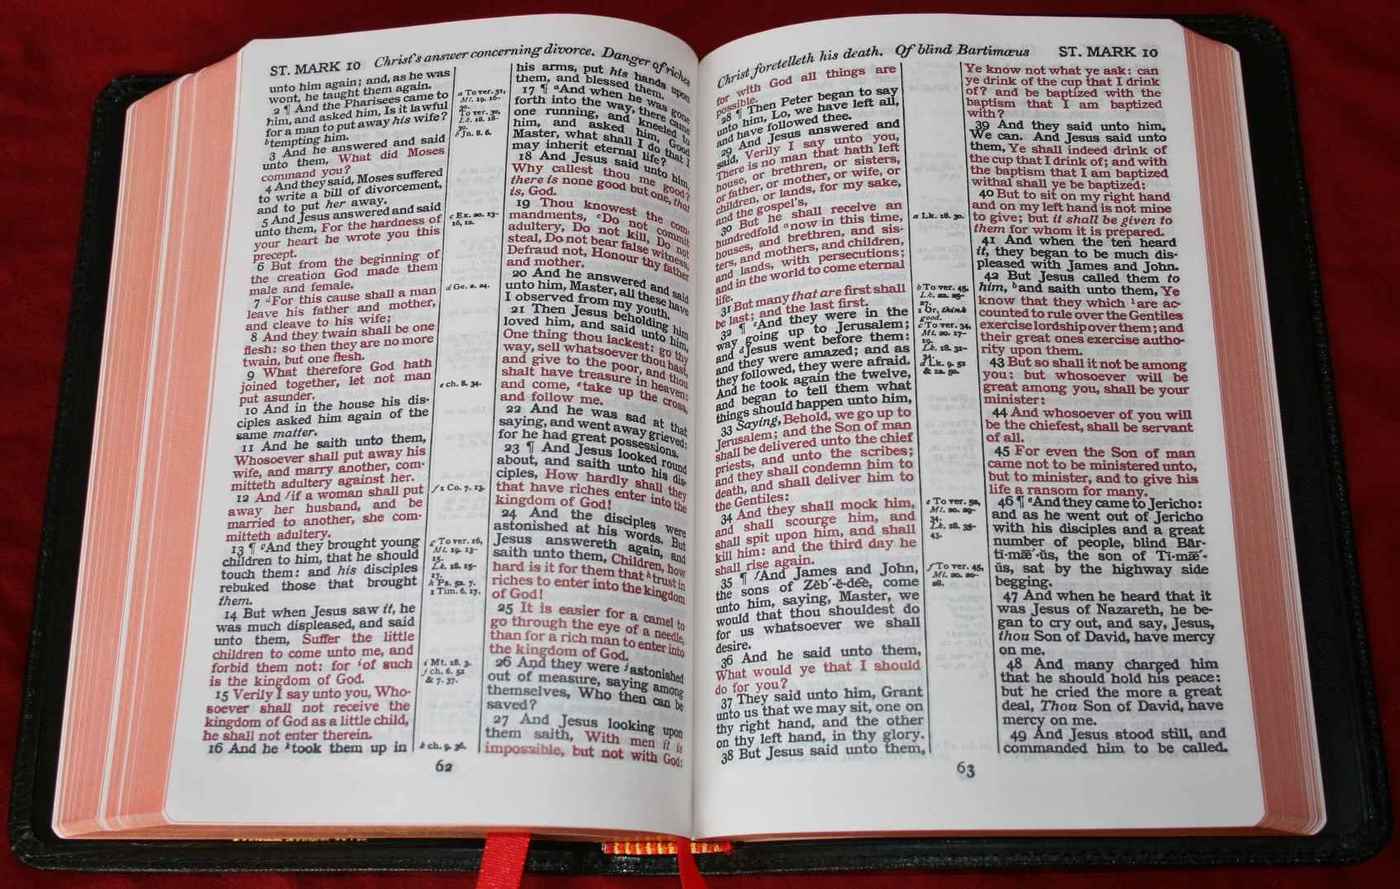 ST. MARK 10 Christ's answer concerning divorce. Danger of riches
unto him again; and, as he was
wont, he taught them again.
2 ¶ And the Pharisees came to
him, and asked him, Is it lawful
for a man to put away his wife?
b tempting him.
3 And he answered and said
unto them, What did Moses
command you?
4 And they said, Moses suffered
to write a bill of divorcement,
and to put her away.
5 And Jesus answered and said
unto them, For the hardness of
your heart he wrote you this
precept.
6 But from the beginning of
the creation God made them
male and female.
7 d For this cause shall a man
leave his father and mother,
and cleave to his wife;
8 And they twain shall be one
flesh: so then they are no more
twain, but one flesh.
9 What therefore God hath
joined together, let not man
put asunder.
10 And in the house his dis-
ciples asked him again of the
same matter.
11 And he saith unto them,
Whosoever shall put away his
wife, and marry another, com-
mitteth adultery against her.
12 And f if a woman shall put
away her husband, and be
married to another, she com-
mitteth adultery.
13 ¶ g And they brought young
children to him, that he should
touch them: and his disciples
rebuked those that brought
them.
14 But when Jesus saw it, he
was much displeased, and said
unto them, Suffer the little
children to come unto me, and
forbid them not: for i of such
is the kingdom of God.
15 Verily I say unto you, Who-
soever shall not receive the
kingdom of God as a little child,
he shall not enter therein.
16 And he k took them up in
a To ver. 31,
Mt. 19. 16-
30.
To ver. 30,
Lk. 18. 18-
30.
b Jn. 8. 6.
c Ex. 20. 13-
16, 12.
d Ge. 2. 24.
e ch. 8. 34.
f 1 Co. 7. 13.
g To ver. 16,
Mt. 19. 13-
15.
Lk. 18. 15-
17.
h Ps. 52. 7.
1 Tim. 6. 17.
i Mt. 18. 3.
j ch. 6. 52
& 7. 37.
k ch. 9. 36.
his arms, put his hands upon
them, and blessed them.
17 ¶ a And when he was gone
forth into the way, there came
one running, and kneeled to
him, and asked him, Good
Master, what shall I do that I
may inherit eternal life?
18 And Jesus said unto him,
Why callest thou me good?
there is none good but one, that
is, God.
19 Thou knowest the com-
mandments, c Do not commit
adultery, Do not kill, Do not
steal, Do not bear false witness,
Defraud not, Honour thy father
and mother.
20 And he answered and said
unto him, Master, all these have
I observed from my youth.
21 Then Jesus beholding him
loved him, and said unto him,
One thing thou lackest: go thy
way, sell whatsoever thou hast,
and give to the poor, and thou
shalt have treasure in heaven:
and come, e take up the cross,
and follow me.
22 And he was sad at that
saying, and went away grieved:
for he had great possessions.
23 ¶ And Jesus looked round
about, and saith unto his dis-
ciples, How hardly shall they
that have riches enter into the
kingdom of God!
24 And the disciples were
astonished at his words. But
Jesus answereth again, and
saith unto them, Children, how
hard is it for them that h trust in
riches to enter into the kingdom
of God!
25 It is easier for a camel to
go through the eye of a needle,
than for a rich man to enter into
the kingdom of God.
26 And they were j astonished
out of measure, saying among
themselves, Who then can be
saved?
27 And Jesus looking upon
them saith, With men it is
impossible, but not with God:
62
Christ foretelleth his death. Of blind Bartimæus ST. MARK 10
for with God all things are
possible.
28 ¶ Then Peter began to say
unto him, Lo, we have left all,
and have followed thee.
29 And Jesus answered and
said, Verily I say unto you,
There is no man that hath left
house, or brethren, or sisters,
or father, or mother, or wife, or
children, or lands, for my sake,
and the gospel's,
30 But he shall receive an
hundredfold a now in this time,
houses, and brethren, and sis-
ters, and mothers, and children,
and lands, with persecutions;
and in the world to come eternal
life.
31 But many that are first shall
be last; and the last first.
32 ¶ c And they were in the
way going up to Jerusalem;
and d Jesus went before them:
and they were amazed; and as
they followed, they were afraid.
And he took again the twelve,
and began to tell them what
things should happen unto him,
33 Saying, Behold, we go up to
Jerusalem; and the Son of man
shall be delivered unto the chief
priests, and unto the scribes;
and they shall condemn him to
death, and shall deliver him to
the Gentiles:
34 And they shall mock him,
and shall scourge him, and
shall spit upon him, and shall
kill him: and the third day he
shall rise again.
35 ¶ f And James and John,
the sons of Zĕb´-ĕ-dēe, come
unto him, saying, Master, we
would that thou shouldest do
for us whatsoever we shall
desire.
36 And he said unto them,
What would ye that I should
do for you?
37 They said unto him, Grant
unto us that we may sit, one on
thy right hand, and the other
on thy left hand, in thy glory.
38 But Jesus said unto them,
a Lk. 18. 30.
b To ver. 45,
Lk. 22. 25-
27.
1 Or, think
good.
c To ver. 34,
Mt. 20. 17-
19.
Lk. 18. 31-
34.
d Lk. 9. 51
& 12. 50.
e To ver. 52,
Mt. 20. 29-
34.
Lk. 18. 35-
43.
f To ver. 45,
Mt. 20. 20-
28.
Ye know not what ye ask: can
ye drink of the cup that I drink
of? and be baptized with the
baptism that I am baptized
with?
39 And they said unto him,
We can. And Jesus said unto
them, Ye shall indeed drink of
the cup that I drink of; and with
the baptism that I am baptized
withal shall ye be baptized:
40 But to sit on my right hand
and on my left hand is not mine
to give; but it shall be given to
them for whom it is prepared.
41 And when the ten heard
it, they began to be much dis-
pleased with James and John.
42 But Jesus called them to
him, b and saith unto them, Ye
know that they which 1 are ac-
counted to rule over the Gentiles
exercise lordship over them; and
their great ones exercise autho-
rity upon them.
43 But so shall it not be among
you: but whosoever will be
great among you, shall be your
minister:
44 And whosoever of you will
be the chiefest, shall be servant
of all.
45 For even the Son of man
came not to be ministered unto,
but to minister, and to give his
life a ransom for many.
46 ¶ e And they came to Jericho:
and as he went out of Jericho
with his disciples and a great
number of people, blind Bär-
tĭ-mæ´-ŭs, the son of Tĭ-mæ´-
ŭs, sat by the highway side
begging.
47 And when he heard that it
was Jesus of Nazareth, he be-
gan to cry out, and say, Jesus,
thou Son of David, have mercy
on me.
48 And many charged him
that he should hold his peace:
but he cried the more a great
deal, Thou Son of David, have
mercy on me.
49 And Jesus stood still, and
commanded him to be called.
63